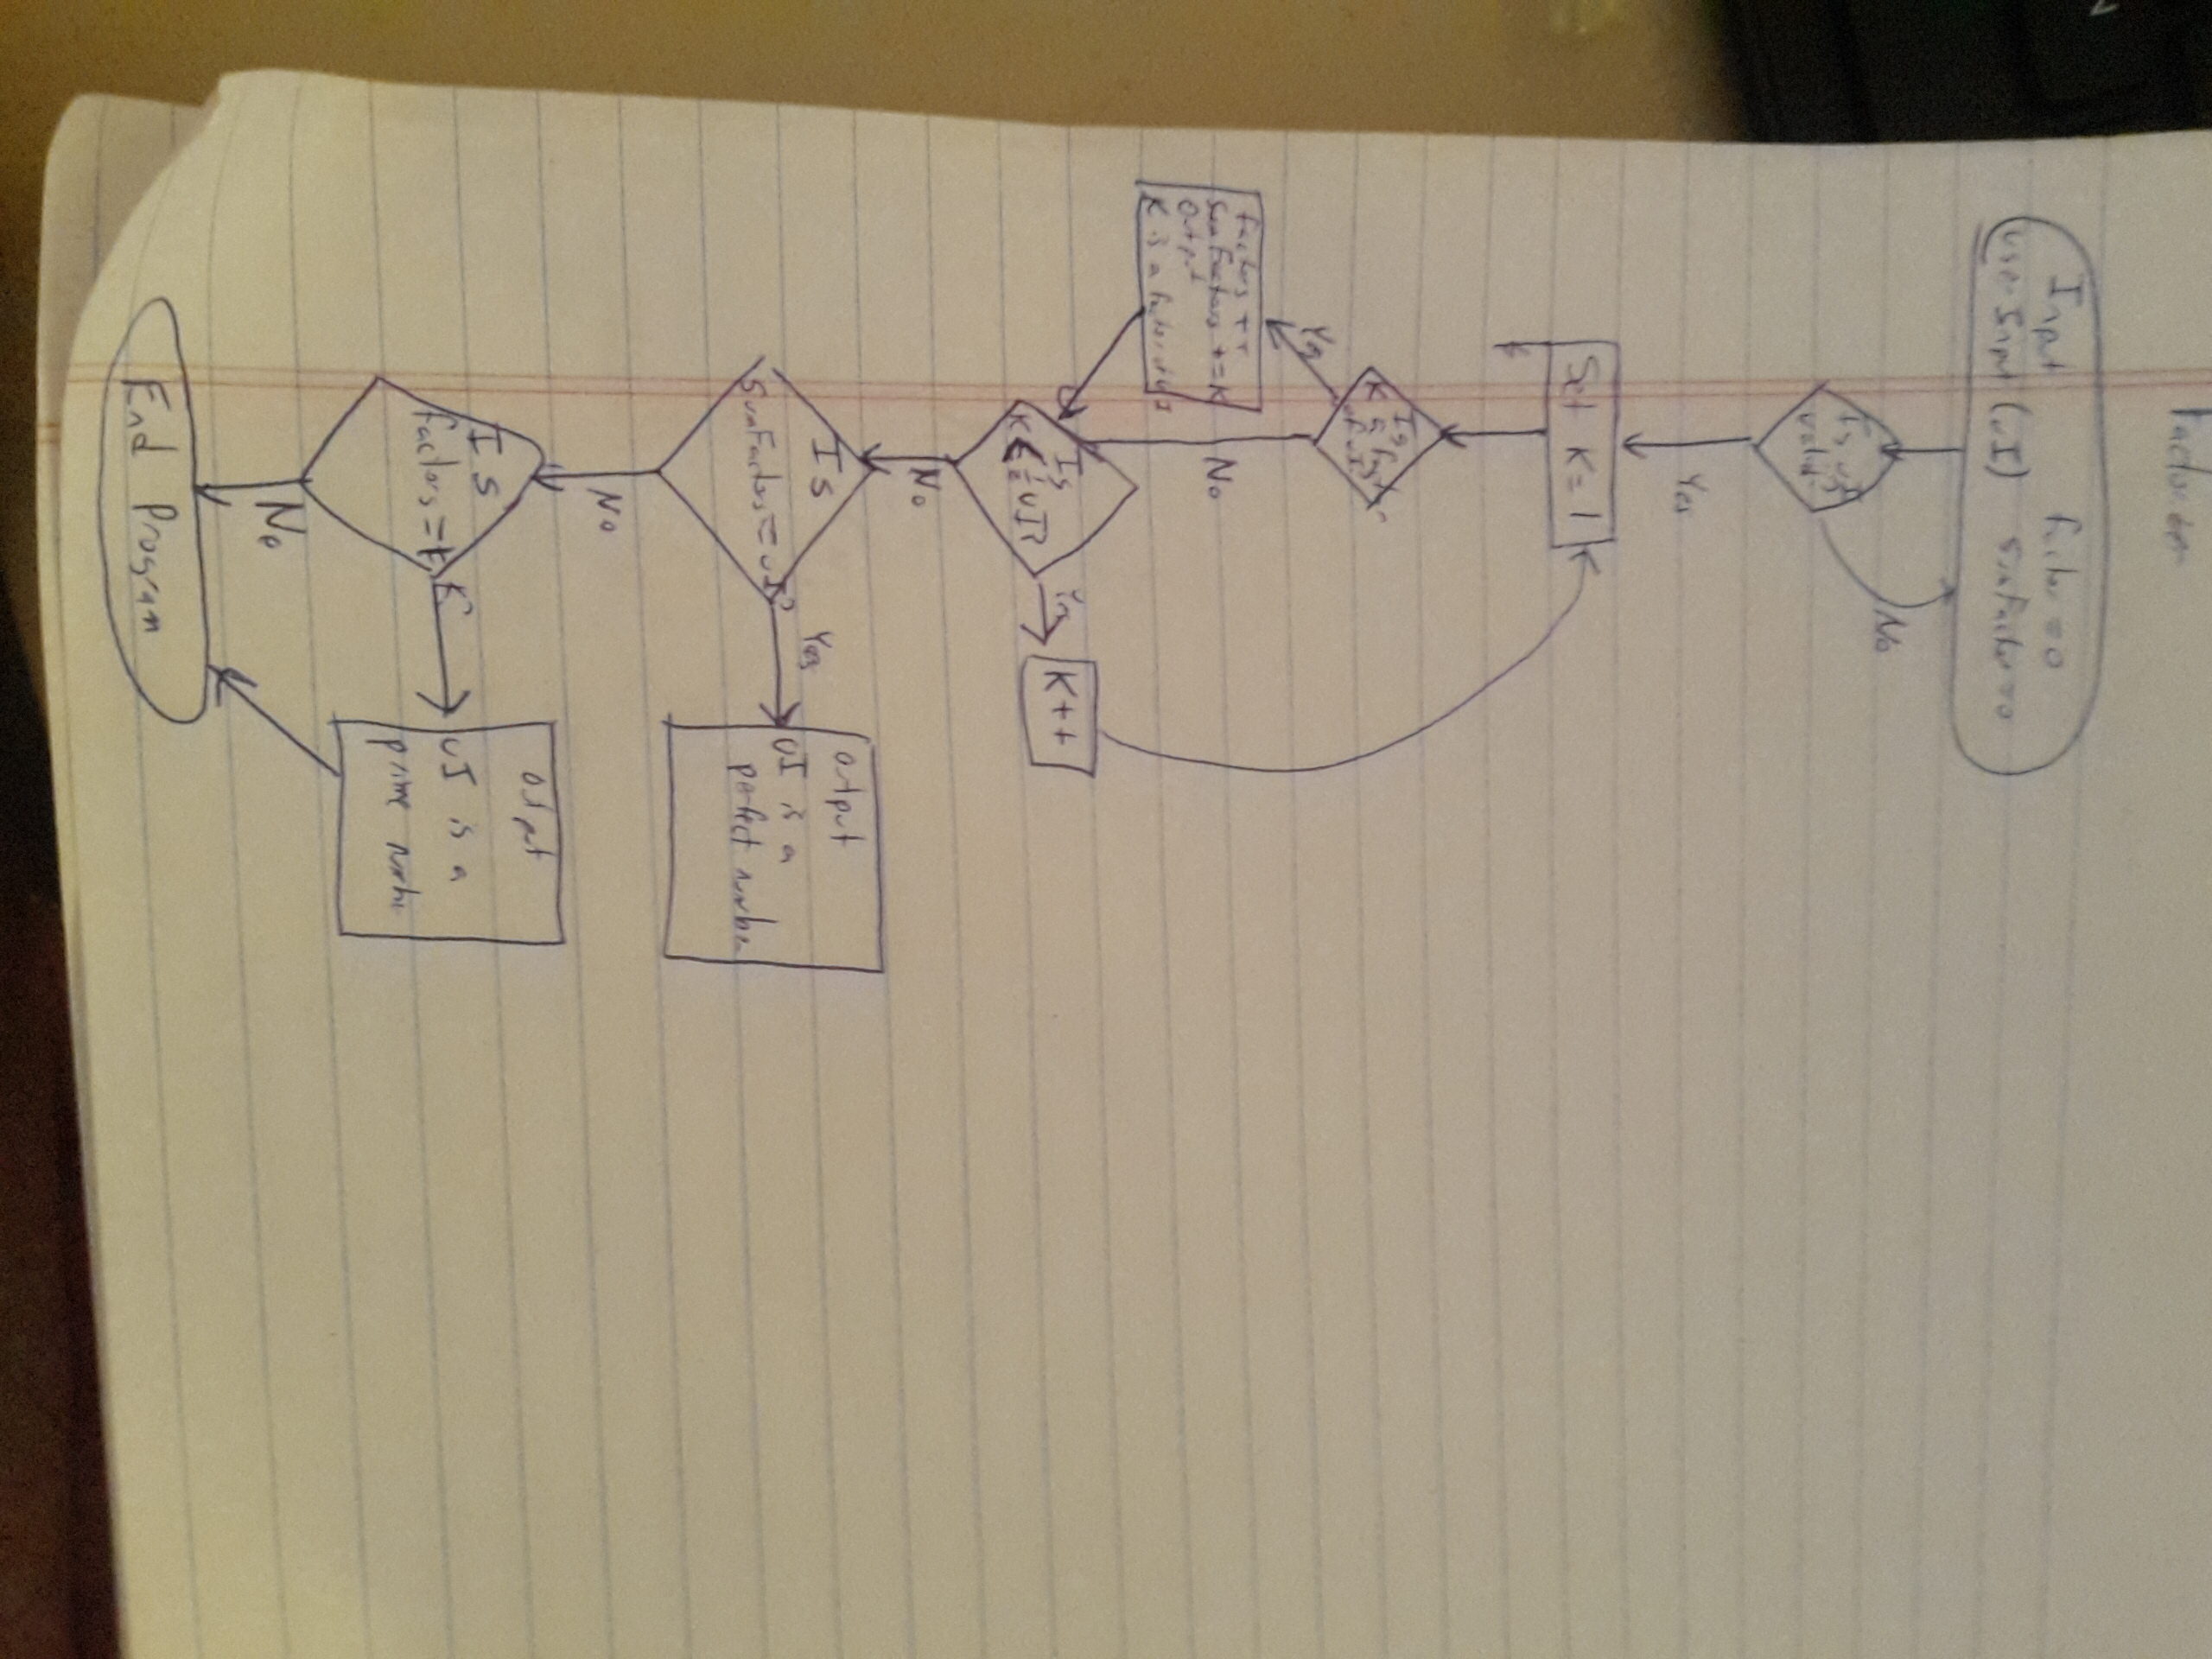 Input factor = 0
userInput (uI) sumFactor = 0
No
Is uI
valid
Yes
Set K = 1
Is
K a factor
of uI
Yes
factors ++
SumFactors += K
Output
K is a factor of uI
No
Is
K < ½ uI?
Yes
K++
No
Is
SumFactors = uI?
Yes
Output
uI is a
perfect number
No
Is
factors =
Output
uI is a
prime number
No
End Program